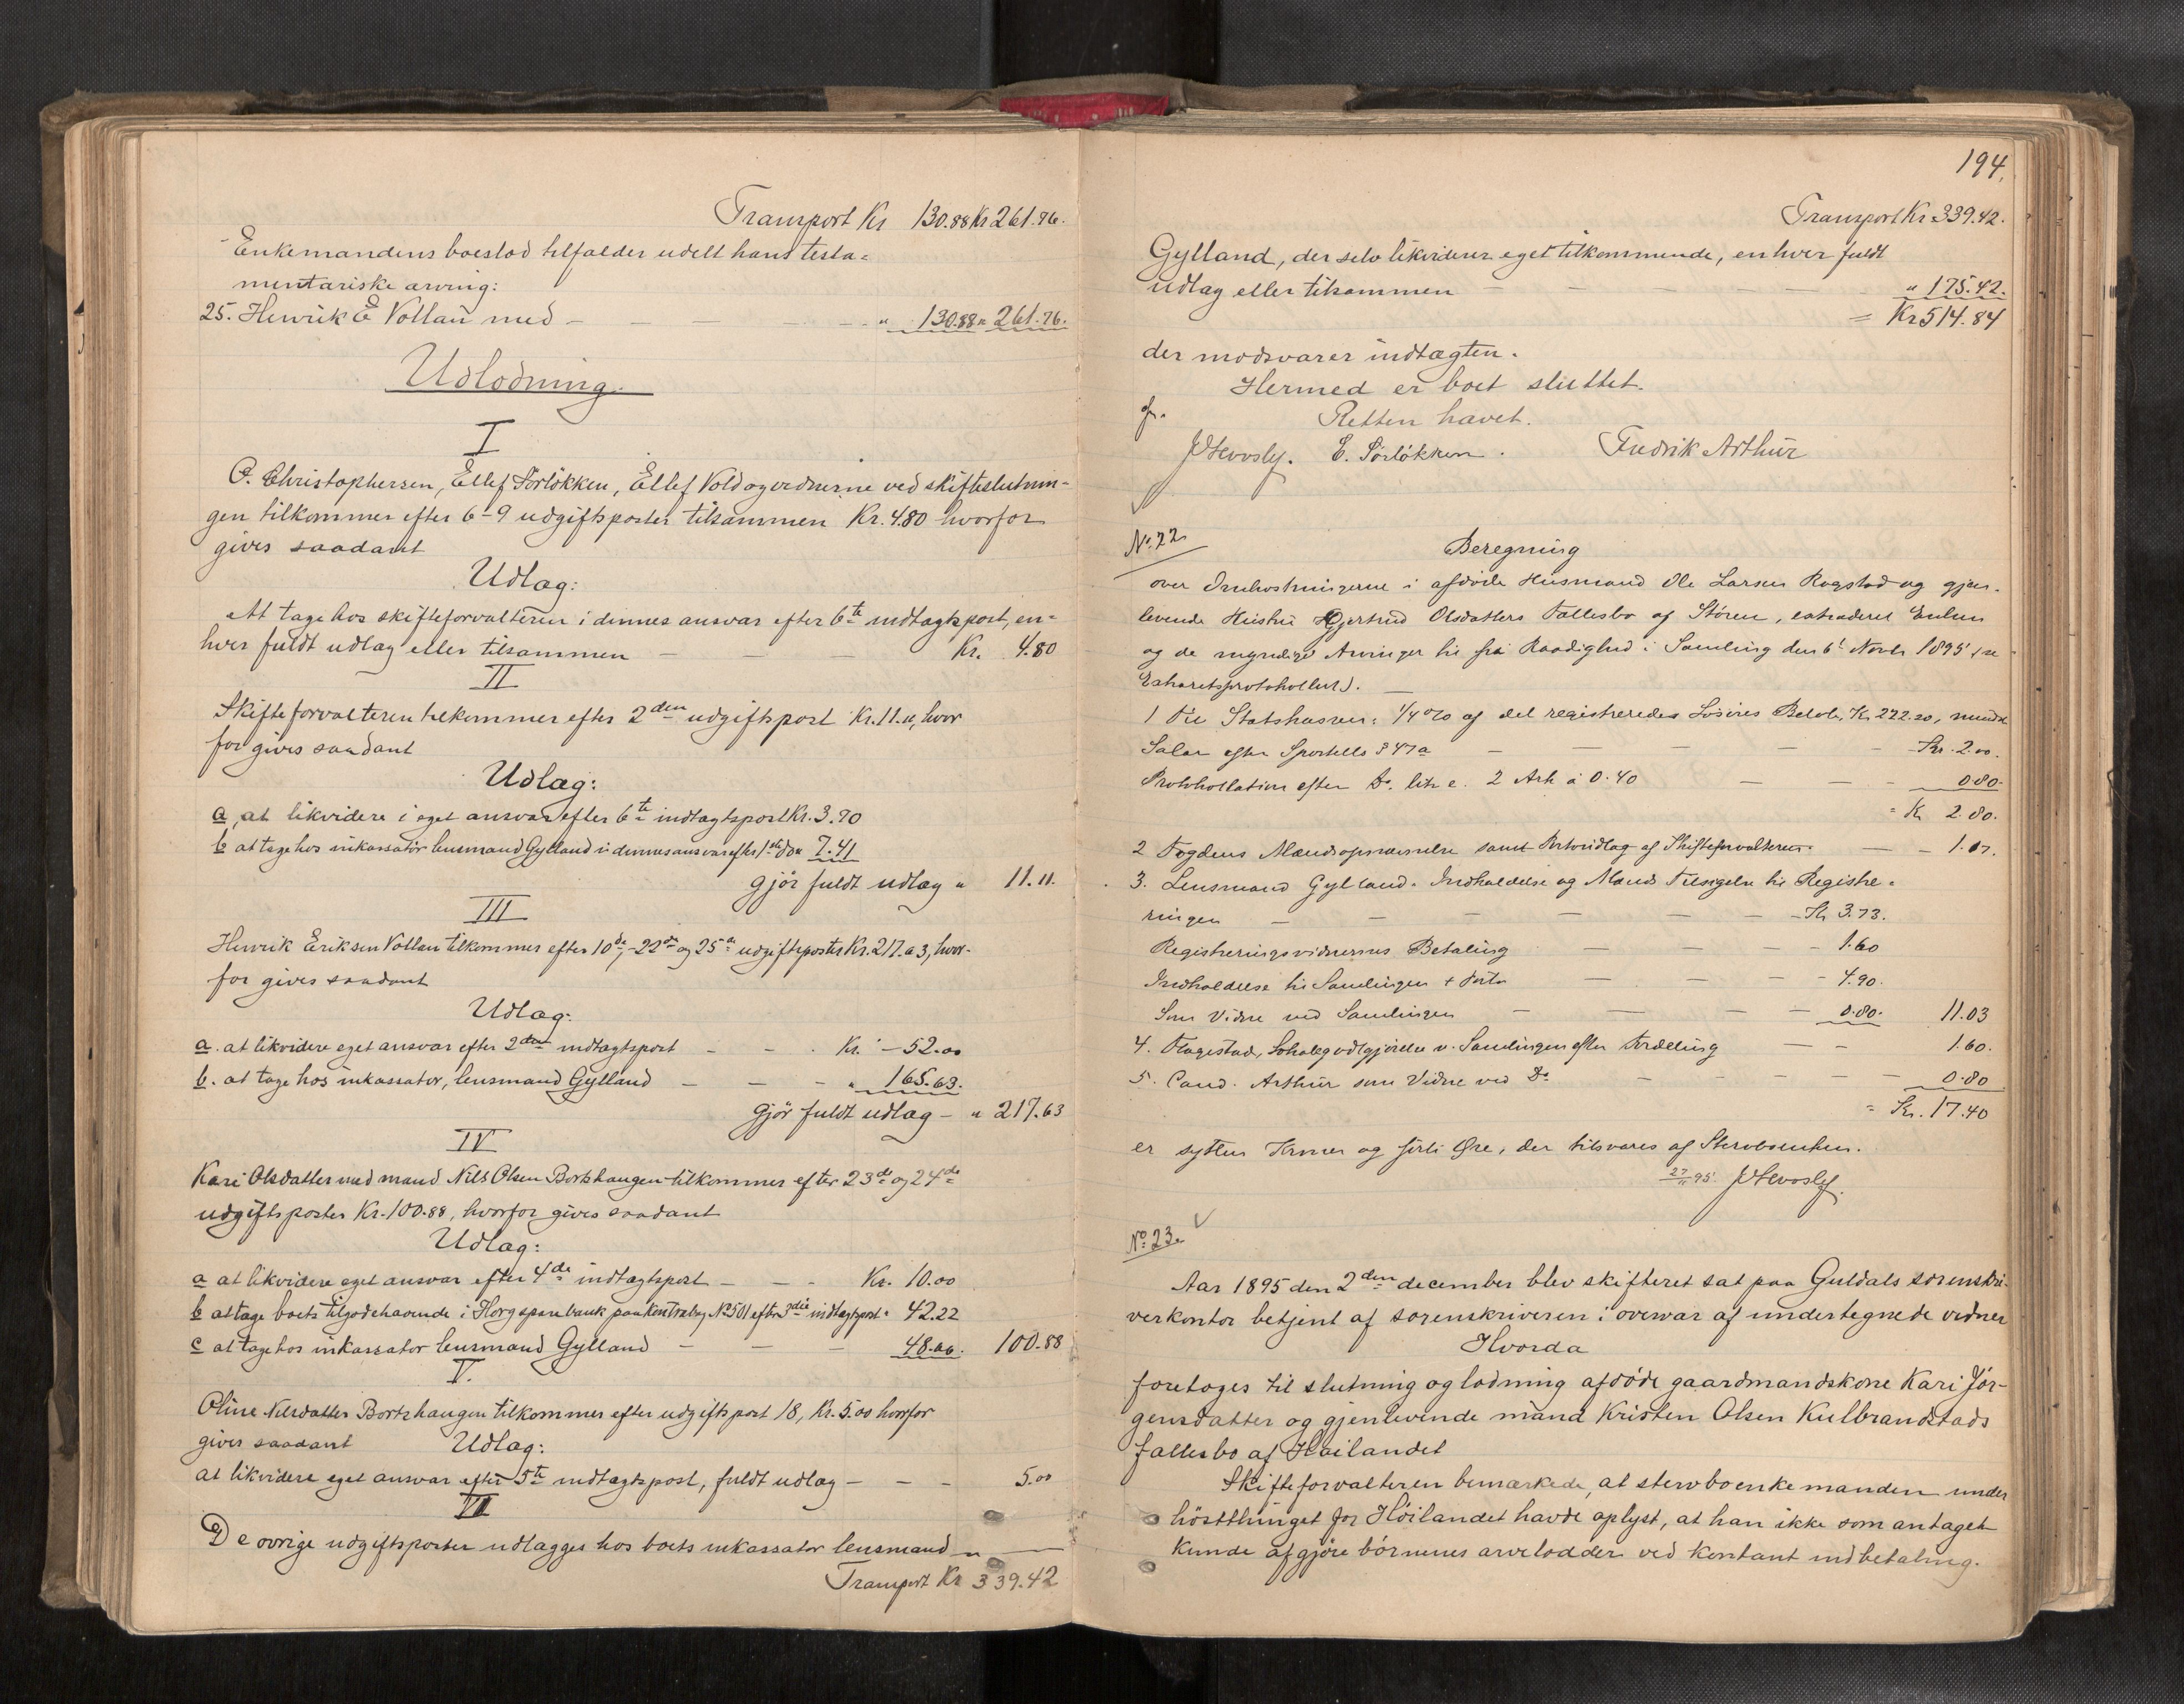 Transport Kr 130.88 Kr 261.76.
Enkemandens boeslod tilfalder udelt hans testa=
mentariske arving:
25. Henrik E Vollan med — — — — " 130.88 " 261.76.
Udlodning.
I
C. Christophersen, Ellef Sörlökken, Ellef Vold og vidnerne ved skifteslutnin-
gen tilkommer efter 6-9 udgiftsposter tilsammen Kr. 4.80 hvorfor
gives saadant
Udlæg:
At tage hos skifteforvalteren i dennes ansvar efter 6te indtægtspost, en=
hver fuldt udlæg eller tilsammen — — — Kr. 4.80
II
Skifteforvalteren tilkommer efter 2den udgiftspost Kr. 11.11, hvor
for gives saadant
Udlæg:
a, at likvidere i eget ansvar efter 6te indtægtspost Kr. 3.70
b at tage hos inkassator lensmand Gylland i dennes ansvar efter 1ste do " 7.41
gjör fuldt udlæg " 11.11.
III
Henrik Eriksen Vollan tilkommer efter 10de, -22de og 25de udgiftsposter Kr. 217.63, hvor-
for gives saadant
Udlæg:
a. at likvidere eget ansvar efter 2den indtægtspost — — Kr. — 52.00
b. at tage hos inkassator, lensmand Gylland — — — " 165.63.
gjör fuldt udlæg — " 217.63
IV
Kari Olsdatter med mand Nils Olsen Bortshaugen tilkommer efter 23de og 24de
udgiftsposter Kr. 100.88, hvorfor gives saadant
Udlæg:
a at likvidere eget ansvar efter 4de indtægtspost — — — Kr. 10.00
b at tage boets tilgodehavende i Horg sparebank paa kontrabog No 501 efter 3die indtægtspost " 42.22
c at tage hos inkassator lensmand Gylland — — — 48.66. 100.88
V.
Oline Nilsdatter Bortshaugen tilkommer efter udgiftspost 18, Kr. 5.00 hvorfor
gives saadant Udlæg:
at likvidere eget ansvar efter 5te indtægtspost, fuldt udlæg — — — 5.00
VI
De övrige udgiftsposter udlægges hos boets inkassator lensmand " —
Transport Kr 339.42
194.
Transport Kr 339.42.
Gylland, der selv likviderer eget tilkommende, enhver fuldt
udlæg eller tilsammen — — — — — " 175.42.
= Kr 514.84
der modsvarer indtægten.
Hermed er boet sluttet.
Retten hævet.
E. Sörlökken. Fredrik Arthur
No. 22
Beregning
over Omkostningerne i afdöde Husmand Ole Larsen Rogstad og gjen-
levende Hustru Gjertrud Olsdatters Fællesbo af Stören, extraderet Enken
og de myndige Arvinger til fri Raadighed i Samling den 6t Novbr 1895 (se
Extraretsprotokollen). —
1 Til Statskassen: 1/4 % af det registreredes Lösöres Belöb, Kr 222.20, mindst
Salar efter Sportells § 47a — — — — — Kr. 2.00.
Protokollation efter Do. litr c. 2 Ark à 0.40 — — — 0.80.
= Kr 2.80.
2 Fogdens Mændsopnævnelse samt Portoudlæg af Skifteforvalteren. — — 1.17.
3. Lensmand Gylland. Indkaldelse og Mænds Tilsigelse til Registre=
ringen — — — — — — — Kr 3.73.
Registreringsvidnernes Betaling — — — — 1.60
Indkaldelse til Samlingen + Porto — — — — 4.90.
Som Vidne ved Samlingen — — — — 0.80. 11.03
4. Flagestad, Lokalegodtgjörelse v. Samlingen efter Fordeling — — 1.60.
5. Cand. Arthur som Vidne ved Do — — — — — 0.80
= Kr. 17.40
er sytten Kroner og förti Öre, der tilsvares af Stervboenken.
27/11 95.
No. 23.
Aar 1895 den 2den december blev skifteret sat paa Guldals sorenskri-
verkontor betjent af sorenskriveren i overvær af undertegnede vidner
Hvorda
foretoges til slutning og lodning afdöde gaardmandskone Kari Jör-
gensdatter og gjenlevende mand Kristen Olsen Kulbrandstads
fællesbo af Höilandet
Skifteforvalteren bemærkede, at stervboenkemanden under
höstthinget for Höilandet havde oplyst, at han ikke som antaget
kunde afgjöre börnenes arvelodder ved kontant indbetaling.